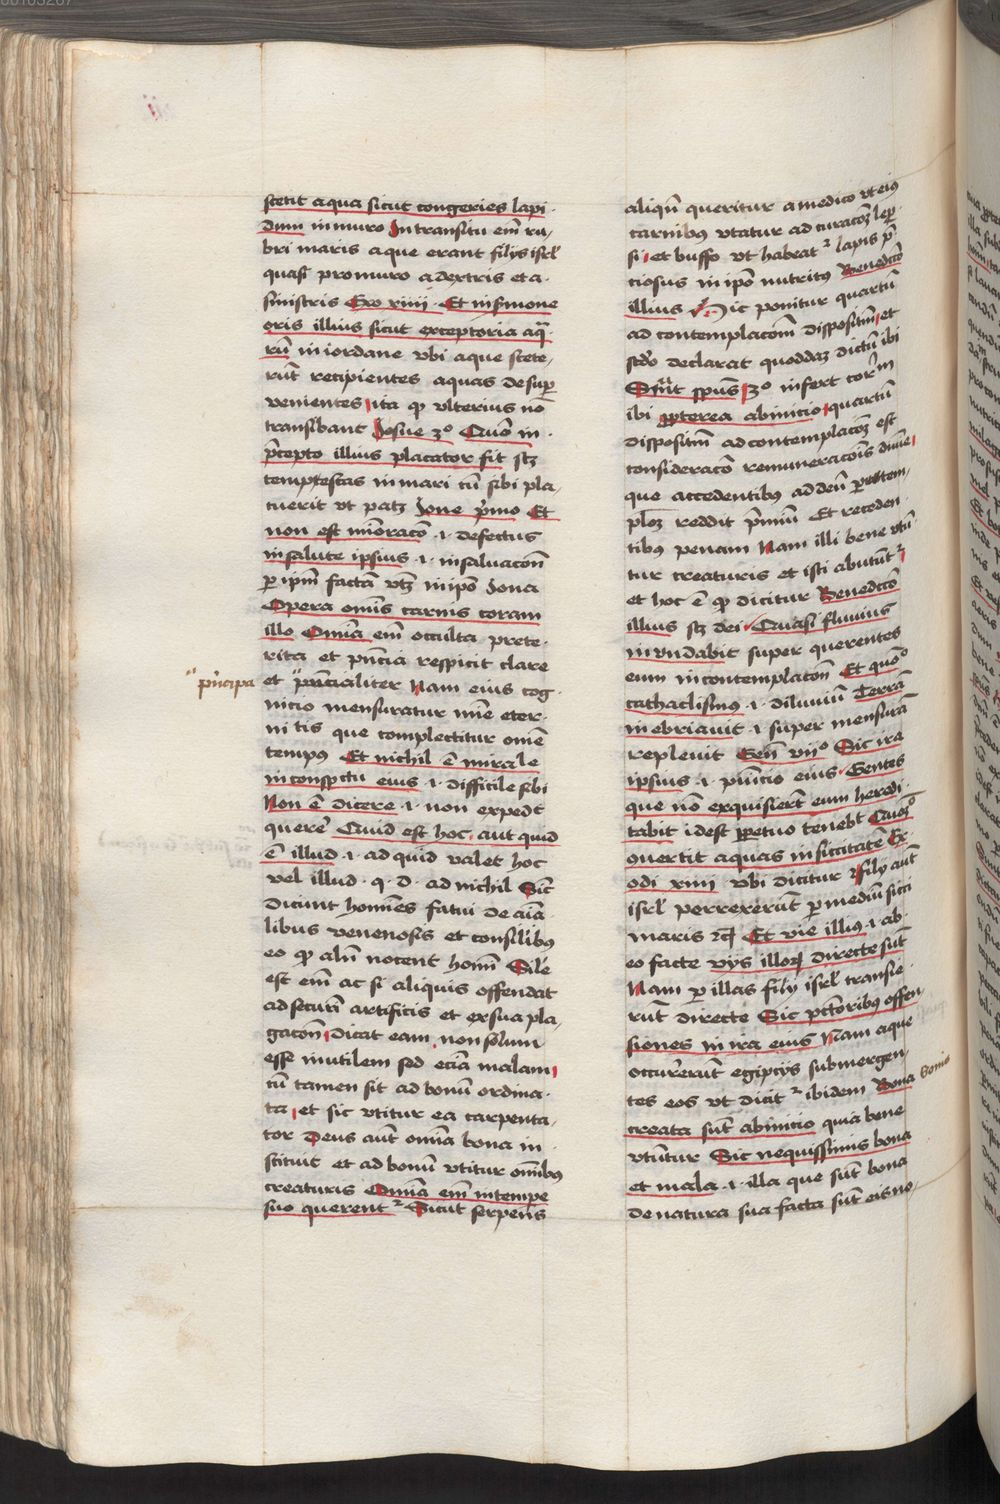 stetit aqua sicut congeries lapi-
dum in muro In transitu em̄ ru-
bri maris aque erant filijs isrl̄
quasi pro muro a dextris et a
sinistris Exo xiiii · Et in s̄mone
oris illius sicut exceptoria aq̄-
rū in iordane vbi aque stete-
rūt recipientes aquas desup̱
venientes ita ꝙ vlterius nō
transibant Josue 3º Quō in
p̄cepto illius placator fit scꝫ
tempestas in mari cū sibi pla-
cuerit vt patꝫ Jone p̄mo Et
non est mīoracō ·i· defectus
in salute ipsius ·i· in saluacōn̄
ꝑ ip̄m factā vtꝫ in ip̄o Jona
Opera omīs carnis coram
illo Om̄ia em̄ occulta prete-
rita et p̄ncia respicit clare
et p̄ncialiter Nam eius cog-
nicio mensuratur īme eter-
nitis que complectitur om̄e
tempus Et nichil ē mirale
in conspectu eius ·i· difficile sibi
Non ē dicere ·i· non expedt
querē Quid est hoc aut quid
ē illud ·i· ad quid valet hoc
vel illud · q · d · ad nichil Sic̄
dicunt homīes fatui de aīa-
libus venenosis et consilibꝰ
eo ꝙ aln̄ nocent homī Silē
est em̄ ac si aliquis offendat
ad securī artificis et ex sua pla-
gacōn̄ dicat eam non solum
esse inutilem sed eciā malam
cū tamen sit ad bonū ordina-
ta et sic vtitur ea carpenta-
tor Deus aūt om̄ia bona in-
stituit et ad bonū vtitur om̄ibꝰ
creaturis Om̄ia em̄ in tempe
suo querent² Sicut serpens
p̄ncipa
aliqn̄ queritur a medico vt eiꝰ
carnibꝰ vtatur ad curacōꝫ lep̱-
si et buffo vt habeat² lapis p̄-
ciosus in ip̄o nutritꝰ Benedcō
illius Hic ponitur quartū
ad contemplacōm dispositīm et
scd̄o declarat quoddaꝫ dictū ibi
Sūt spūs 3º infert
ibi ꝓpterea ab inicio quartū
dispositīm ad contemplacōꝫ est
consideracō remuneracōis diuīe
que accedentibꝰ ad deū
reddit p̄miū Et receden-
tibꝰ penam Nam illi bene vtū-
tur creaturis et isti abutūt²
et hoc ē ꝙ dicitur Benedcō
illius scꝫ dei Quasi fluuius
inundabit super querentes
eum in contemplacōn̄ Et quōº
cathaclismus ·i· diluuiū Terrā
inebriauit ·i· super mensurā
repleuit Gen̄ vijº Sic ira
ipsius ·i· pūicio eius Gentes
que nō exquisierūt eum heredi-
tabit id est ꝑpetuo tenebt Quōº
ꝯuertit aquas in siccitatē Ex-
odi xiiii vbi dicitur filij aūt
isrl̄ perrexerūt ꝑ mediū sicci
maris ꝛc̄ Et vie illius ·i· ab
eo facte vijs illoꝝ directe sūt
Nam ꝑ illas filij isrl̄ transie-
rūt directe Sic pctōribus offen-
siones in ira eius Nam aque
occurrerūt egiptijs submergen-
tes eos vt dicit² ibidem Bona bonis
creata sūt ab inicio quia bene
vtūtur Sic nequissimis bona
et mala ·i· illa que sūt bona
de natura sua facta sūt eis no-